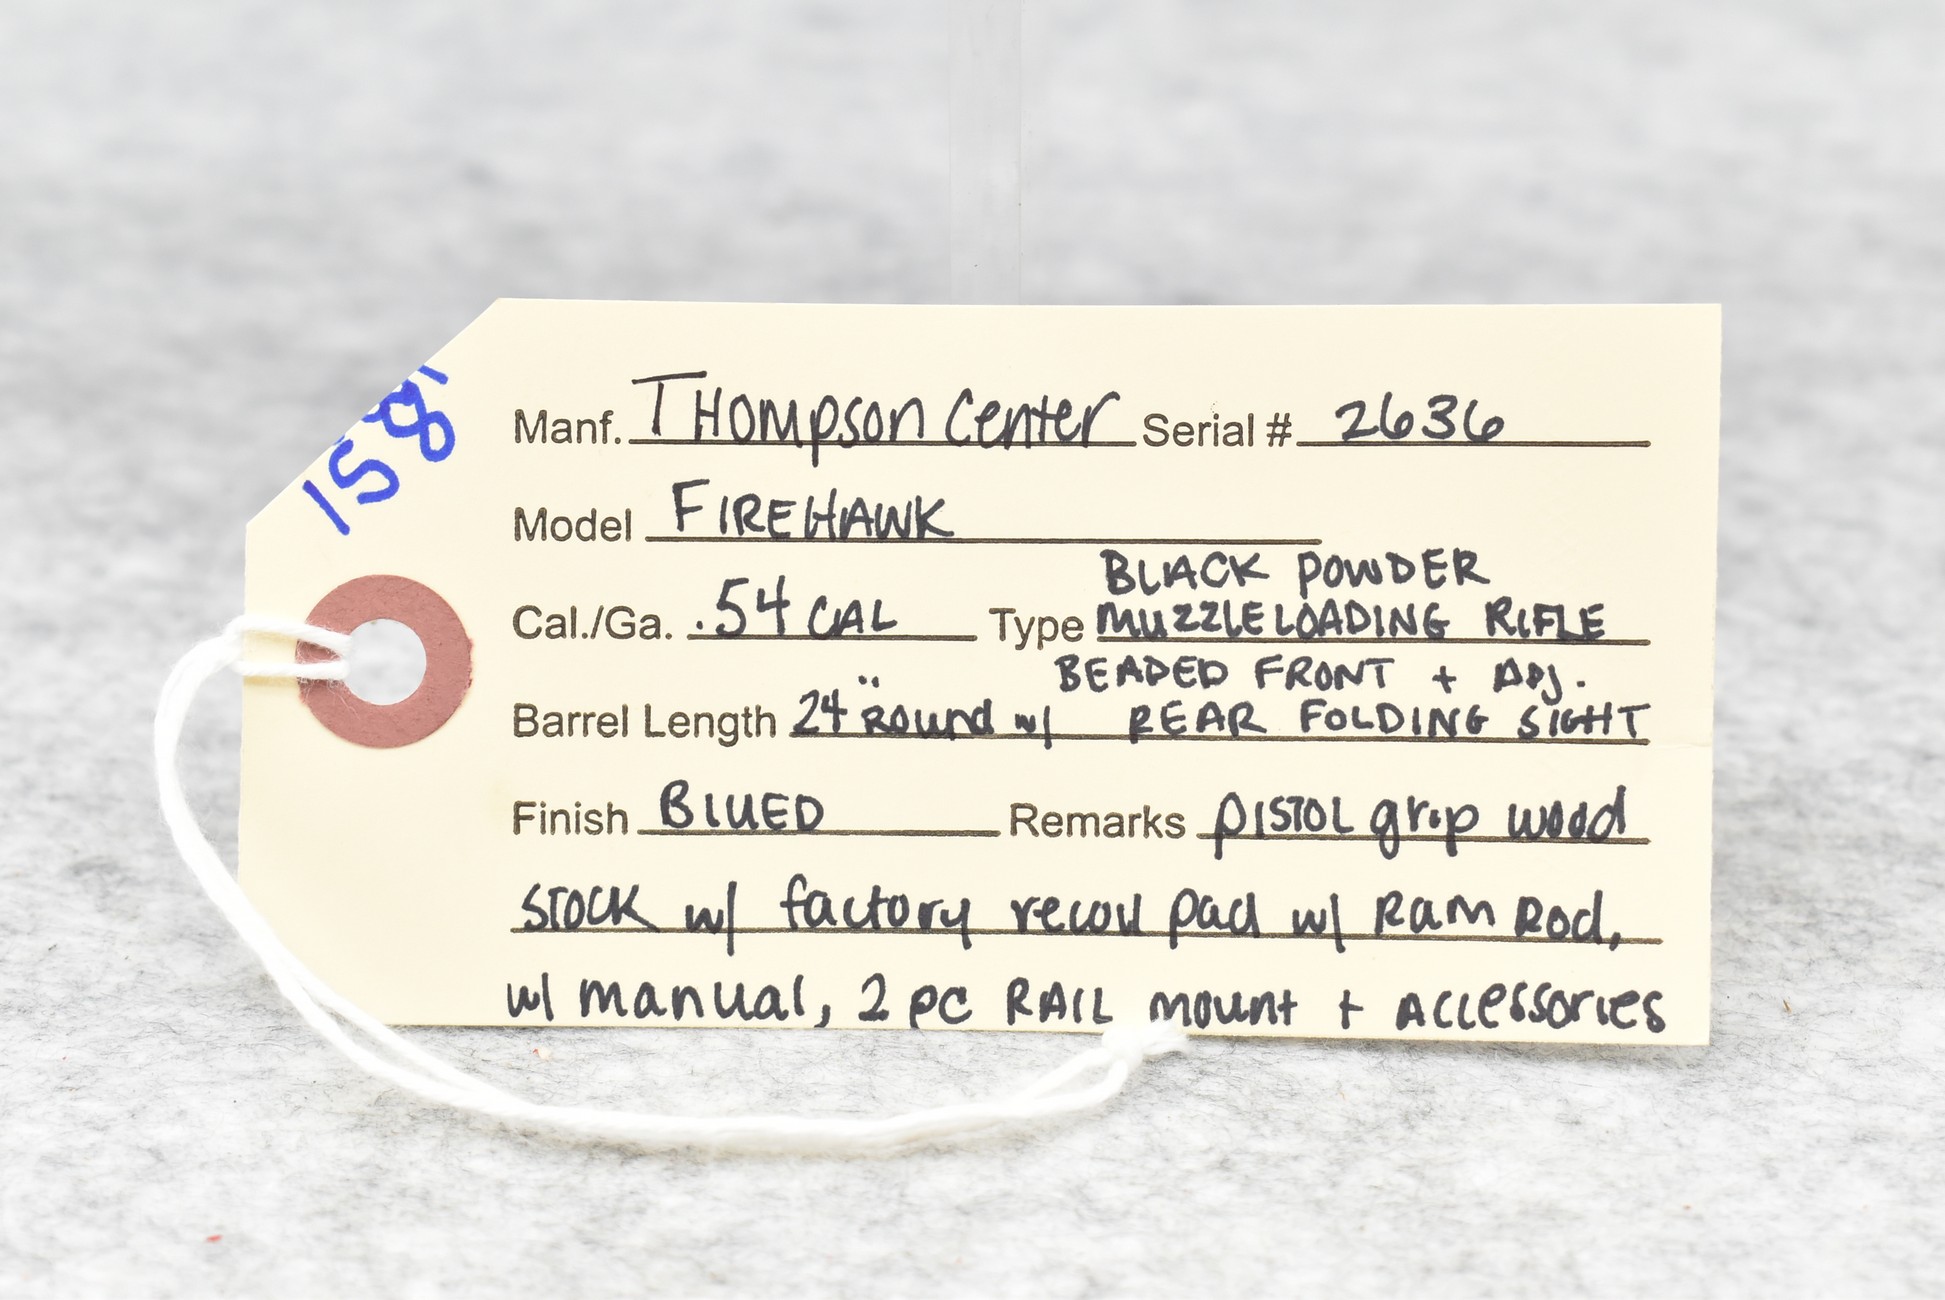 158
Manf. THompson Center Serial # 2636
Model FIREHAWK
BLACK POWDER
Cal./Ga. .54 CAL Type MUZZLELOADING RIFLE
BEADED FRONT + ADJ.
Barrel Length 24" Round w/ REAR FOLDING SIGHT
Finish BLUED Remarks PISTOL grip wood
STOCK w/ factory recoil pad w/ Ram Rod,
w/ manual, 2 pc RAIL mount + ACCessories